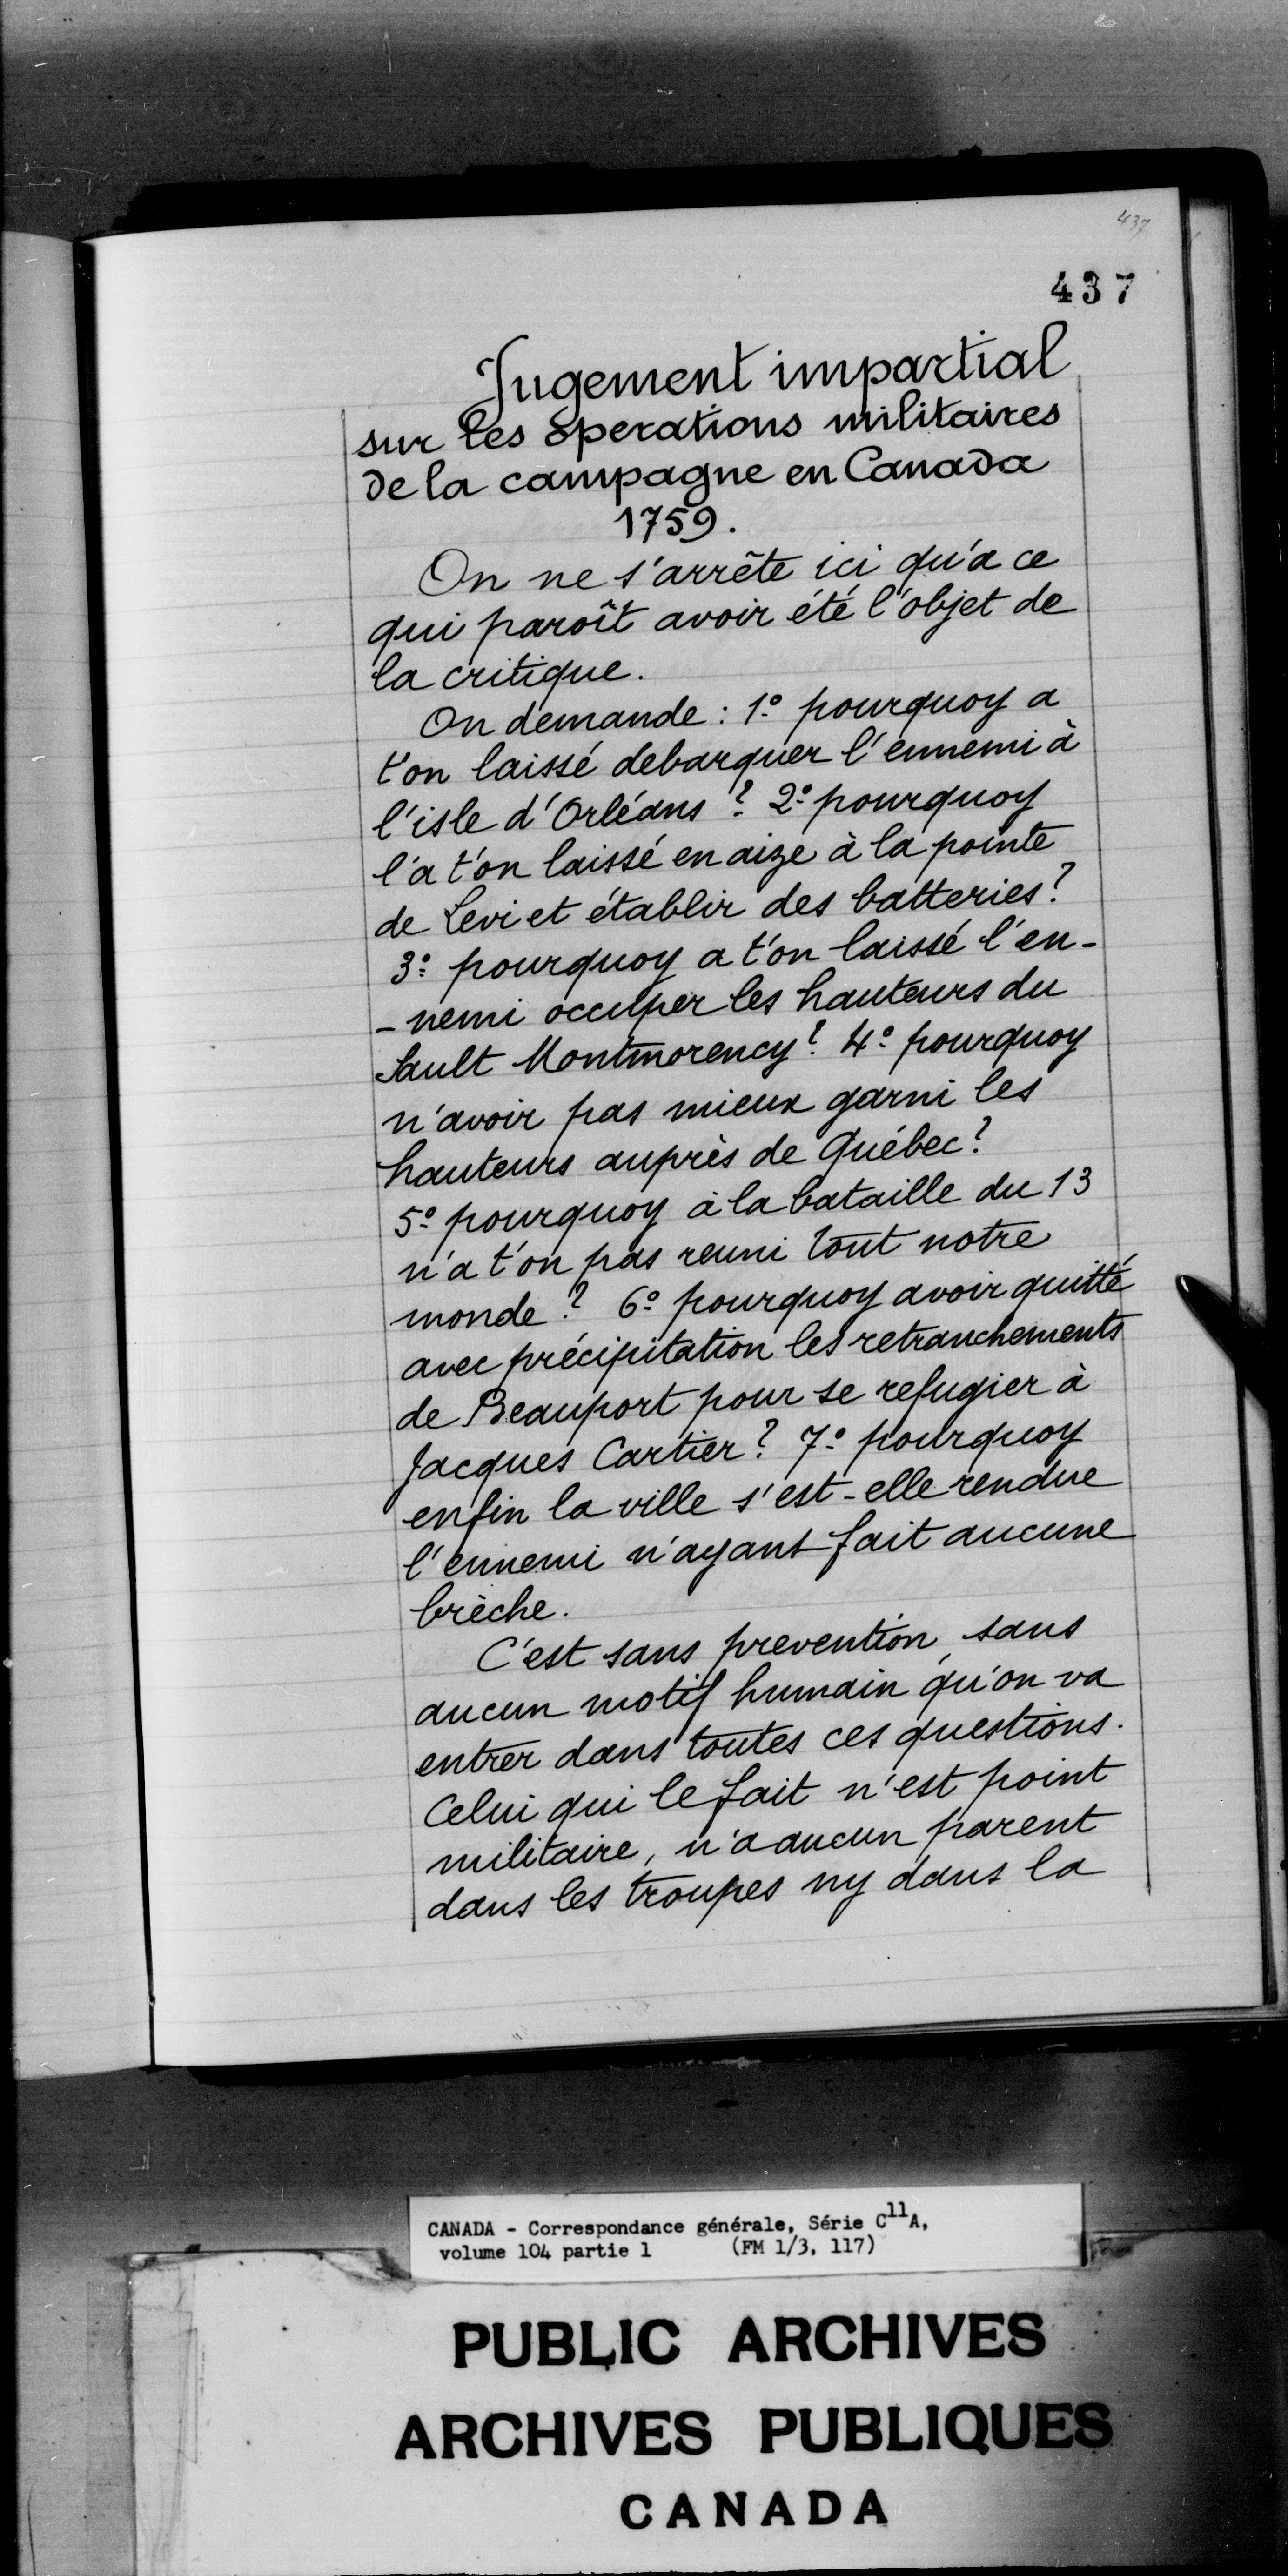 437
437
Jugement impartial
sur les operations militaires
de la campagne en Canada
1759.
On ne s'arrête ici qu'a ce
qui paroît avoir été l'objet de
la critique.
On demande : 1º pourquoy a
t'on laissé debarquer l'ennemi à
l'isle d'Orléans ? 2º pourquoy
l'a t'on laissé en aize à la pointe
de Levi et établir des batteries ?
3º pourquoy a t'on laissé l'en-
-nemi occuper les hauteurs du
Sault Montmorency ? 4º pourquoy
n'avoir pas mieux garni les
hauteurs auprès de Québec ?
5º pourquoy à la bataille du 13
n'a t'on pas reuni tout notre
monde ? 6º pourquoy avoir quitté
avec précipitation les retranchements
de Beauport pour se refugier à
Jacques Cartier ? 7º pourquoy
enfin la ville s'est-elle rendue
l'ennemi n'ayant fait aucune
brèche.
C'est sans prevention, sans
aucun motif humain qu'on va
entrer dans toutes ces questions.
Celui qui le fait n'est point
militaire, n'a aucun parent
dans les troupes ny dans la
CANADA - Correspondance générale, Série C11A,
volume 104 partie 1 (FM 1/3, 117)
PUBLIC ARCHIVES
ARCHIVES PUBLIQUES
CANADA